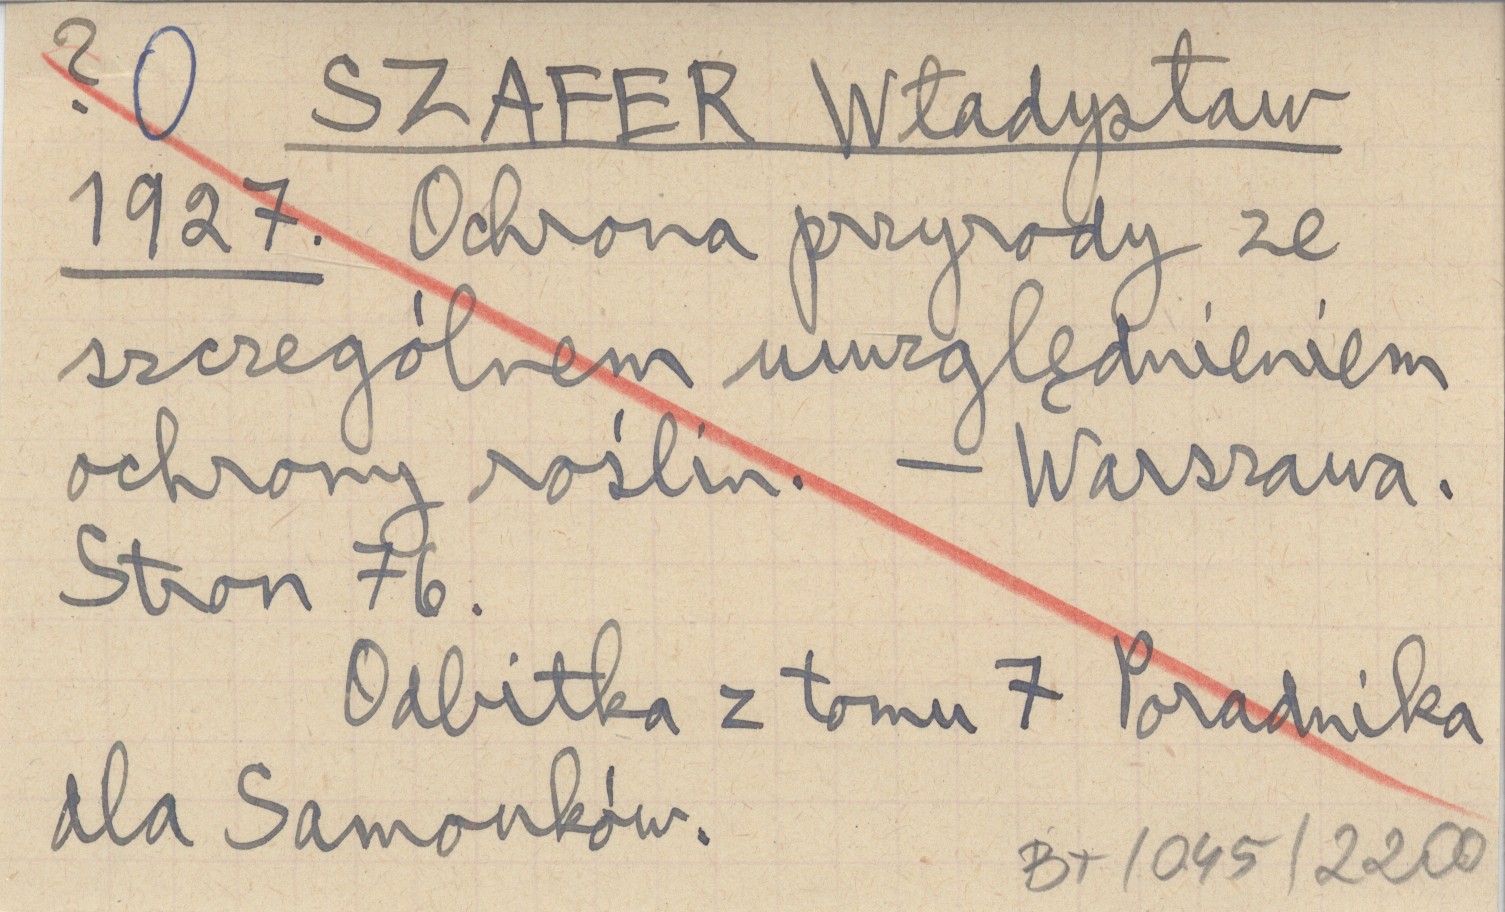 ? O SZAFER Władysław
1927. Ochrona przyrody ze
szczególnem uwzględnieniem
ochrony roślin. — Warszawa.
Stron 76.
Odbitka z tomu 7 Poradnika
dla Samouków.
BT/045/2200